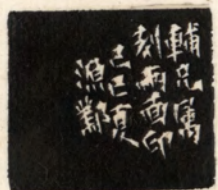 輔兄屬
刻兩面印
己巳夏
漁鄰